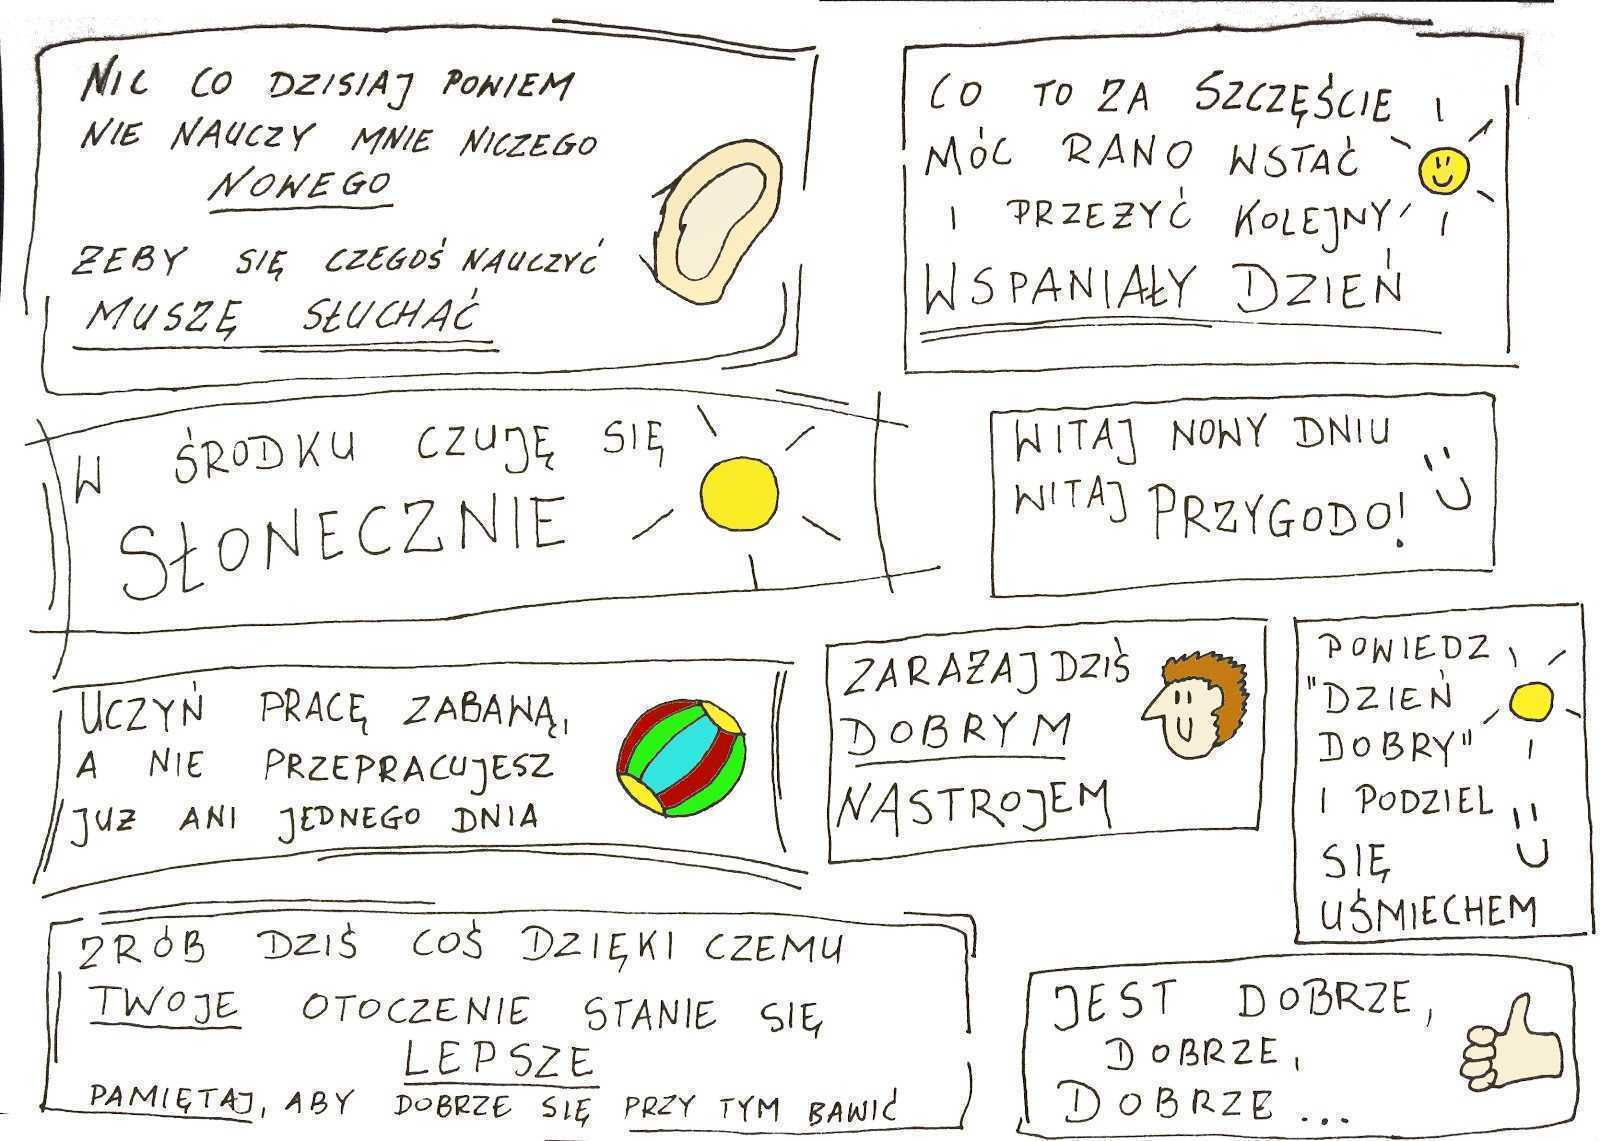 NIC CO DZISIAJ POWIEM
NIE NAUCZY MNIE NICZEGO
NOWEGO
ŻEBY SIĘ CZEGOŚ NAUCZYĆ
MUSZĘ SŁUCHAĆ
CO TO ZA SZCZĘŚCIE
MÓC RANO WSTAĆ
I PRZEŻYĆ KOLEJNY
WSPANIAŁY DZIEŃ
W ŚRODKU CZUJĘ SIĘ
SŁONECZNIE
WITAJ NOWY DNIU
WITAJ PRZYGODO!
UCZYŃ PRACĘ ZABAWĄ,
A NIE PRZEPRACUJESZ
JUŻ ANI JEDNEGO DNIA
ZARAŻAJ DZIŚ
DOBRYM
NASTROJEM
POWIEDZ
"DZIEŃ
DOBRY"
I PODZIEL
SIĘ
UŚMIECHEM
ZRÓB DZIŚ COŚ DZIĘKI CZEMU
TWOJE OTOCZENIE STANIE SIĘ
LEPSZE
PAMIĘTAJ, ABY DOBRZE SIĘ PRZY TYM BAWIĆ
JEST DOBRZE,
DOBRZE,
DOBRZE...